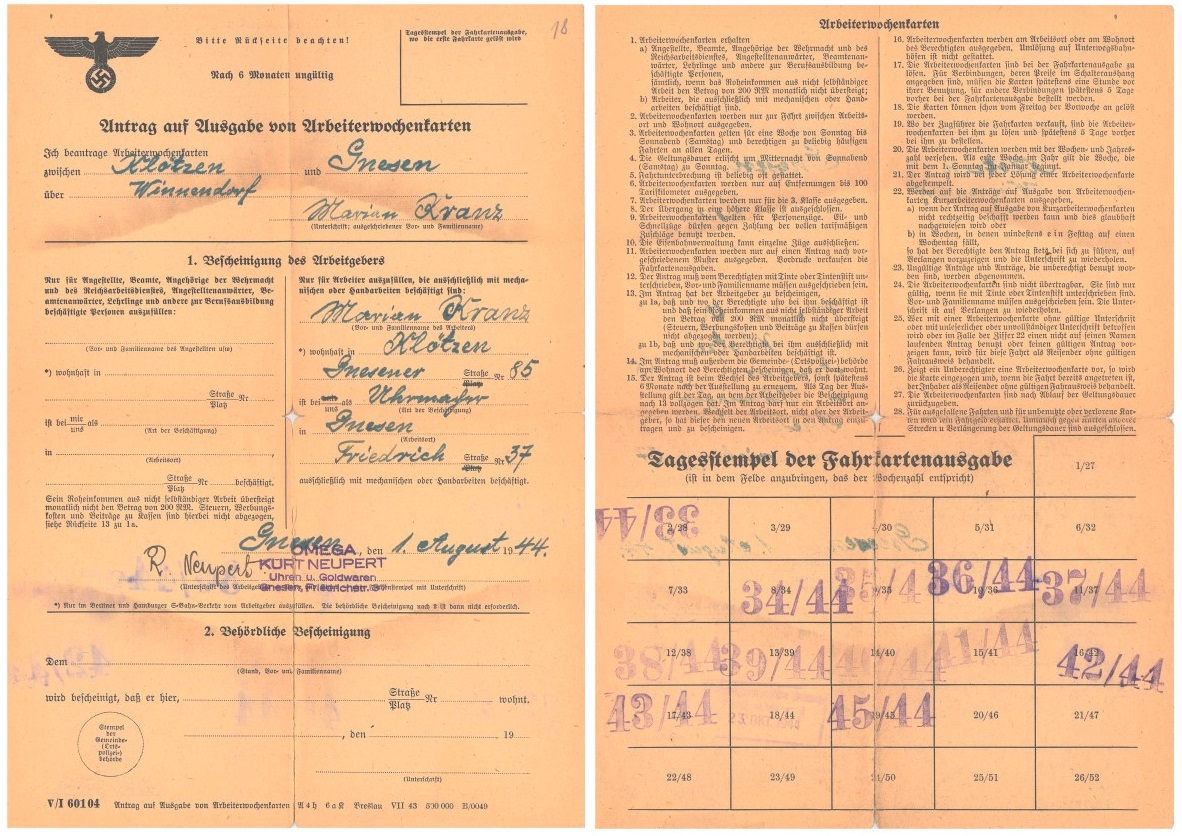 18
Bitte Rückseite beachten!
Tagesstempel der Fahrkartenausgabe,
wo die erste Fahrkarte gelöst wird
Nach 6 Monaten ungültig
Antrag auf Ausgabe von Arbeiterwochenkarten
Ich beantrage Arbeiterwochenkarten
zwischen Klotzen und Gnesen
über Winnendorf
Marian Kranz
(Unterschrift; ausgeschriebener Vor- und Familienname)
1. Bescheinigung des Arbeitgebers
Nur für Angestellte, Beamte, Angehörige der Wehrmacht
und des Reichsarbeitsdienstes, Angestelltenanwärter, Be-
amtenanwärter, Lehrlinge und andere zur Berufsausbildung
beschäftigte Personen auszufüllen:
(Vor- und Familienname des Angestellten usw)
*) wohnhaft in
Straße Nr
Platz
ist bei mir als
uns
(Art der Beschäftigung)
in
(Arbeitsort)
Straße Nr beschäftigt.
Platz
Sein Roheinkommen aus nicht selbständiger Arbeit übersteigt
monatlich nicht den Betrag von 200 RM. Steuern, Werbungs-
kosten und Beiträge zu Kassen sind hierbei nicht abgezogen,
siehe Rückseite 13 zu 1a.
Nur für Arbeiter auszufüllen, die ausschließlich mit mecha-
nischen oder Handarbeiten beschäftigt sind:
Marian Kranz
(Vor- und Familienname des Arbeiters)
*) wohnhaft in Klotzen
Gnesener Straße Nr 85
Platz
ist bei mir als Uhrmacher
uns
(Art der Beschäftigung)
in Gnesen
(Arbeitsort)
Friedrich Straße Nr 37
Platz
ausschließlich mit mechanischen oder Handarbeiten beschäftigt.
Gnesen, den 1. August 1944.
R. Neupert
OMEGA
KURT NEUPERT
Uhren u. Goldwaren
Gnesen, Friedrichstr. 37
*) Nur im Berliner und Hamburger S-Bahn-Verkehr vom Arbeitgeber auszufüllen. Die behördliche Bescheinigung nach 2 ist dann nicht erforderlich.
2. Behördliche Bescheinigung
Dem
(Stand, Vor- und Familienname)
wird bescheinigt, daß er hier, Straße Nr wohnt.
Platz
Stempel
der
Gemeinde-
(Orts-
polizei-)
behörde
, den 19
(Unterschrift)
V/I 60104 Antrag auf Ausgabe von Arbeiterwochenkarten A4h 6aK Breslau VII 43 500 000 E/0049
Arbeiterwochenkarten
1. Arbeiterwochenkarten erhalten
a) Angestellte, Beamte, Angehörige der Wehrmacht und des
Reichsarbeitsdienstes, Angestelltenanwärter, Beamtenan-
wärter, Lehrlinge und andere zur Berufsausbildung be-
schäftigte Personen,
sämtlich, wenn das Roheinkommen aus nicht selbständiger
Arbeit den Betrag von 200 RM monatlich nicht übersteigt;
b) Arbeiter, die ausschließlich mit mechanischen oder Hand-
arbeiten beschäftigt sind.
2. Arbeiterwochenkarten werden nur zur Fahrt zwischen Arbeits-
ort und Wohnort ausgegeben.
3. Arbeiterwochenkarten gelten für eine Woche von Sonntag bis
Sonnabend (Samstag) und berechtigen zu beliebig häufigen
Fahrten an allen Tagen.
4. Die Geltungsdauer erlischt um Mitternacht von Sonnabend
(Samstag) zu Sonntag.
5. Fahrtunterbrechung ist beliebig oft gestattet.
6. Arbeiterwochenkarten werden nur auf Entfernungen bis 100
Tarifkilometer ausgegeben.
7. Arbeiterwochenkarten werden nur für die 3. Klasse ausgegeben.
8. Der Übergang in eine höhere Klasse ist ausgeschlossen.
9. Arbeiterwochenkarten gelten für Personenzüge. Eil- und
Schnellzüge dürfen gegen Zahlung der vollen tarifmäßigen
Zuschläge benutzt werden.
10. Die Eisenbahnverwaltung kann einzelne Züge ausschließen.
11. Arbeiterwochenkarten werden nur auf einen Antrag nach vor-
geschriebenem Muster ausgegeben. Vordrucke verkaufen die
Fahrkartenausgaben.
12. Der Antrag muß vom Berechtigten mit Tinte oder Tintenstift un-
terschrieben, Vor- und Familienname müssen ausgeschrieben sein.
13. Im Antrag hat der Arbeitgeber zu bescheinigen,
zu 1a, daß und wo der Berechtigte von ihm beschäftigt ist
und daß sein Roheinkommen aus nicht selbständiger Arbeit
den Betrag von 200 RM monatlich nicht übersteigt
(Steuern, Werbungskosten und Beiträge zu Kassen dürfen
nicht abgezogen werden);
zu 1b, daß und wo der Berechtigte bei ihm ausschließlich mit
mechanischen oder Handarbeiten beschäftigt ist.
14. Im Antrag muß außerdem die Gemeinde-(Ortspolizei)-behörde
am Wohnort des Berechtigten bescheinigen, daß er dort wohnt.
15. Der Antrag ist beim Wechsel des Arbeitgebers, sonst spätestens
6 Monate nach der Ausstellung zu erneuern. Als Tag der Aus-
stellung gilt der Tag, an dem der Arbeitgeber die Bescheinigung
nach 13 vollzogen hat. Im Antrag darf nur ein Arbeitsort an-
gegeben werden. Wechselt der Arbeitsort, nicht aber der Arbeit-
geber, so hat dieser den neuen Arbeitsort in den Antrag einzu-
tragen und zu bescheinigen.
16. Arbeiterwochenkarten werden am Arbeitsort oder am Wohnort
des Berechtigten ausgegeben. Umlösung auf Unterwegsbahn-
höfen ist nicht gestattet.
17. Die Arbeiterwochenkarten sind bei der Fahrkartenausgabe zu
lösen. Für Verbindungen, deren Preise im Schalteraushang
angegeben sind, müssen die Karten spätestens eine Stunde vor
ihrer Benutzung, für andere Verbindungen spätestens 5 Tage
vorher bei der Fahrkartenausgabe bestellt werden.
18. Die Karten können schon vom Freitag der Vorwoche an gelöst
werden.
19. Wo der Zugführer die Fahrkarten verkauft, sind die Arbeiter-
wochenkarten bei ihm zu lösen und spätestens 5 Tage vorher
bei ihm zu bestellen.
20. Die Arbeiterwochenkarten werden mit der Wochen- und Jahres-
zahl versehen. Als erste Woche im Jahr gilt die Woche, die
mit dem 1. Sonntag im Januar beginnt.
21. Der Antrag wird bei jeder Lösung einer Arbeiterwochenkarte
abgestempelt.
22. Werden auf die Anträge auf Ausgabe von Arbeiterwochen-
karten Kurzarbeiterwochenkarten ausgegeben,
a) wenn der Antrag auf Ausgabe von Kurzarbeiterwochenkarten
nicht rechtzeitig beschafft werden kann und dies glaubhaft
nachgewiesen wird oder
b) in Wochen, in denen mindestens ein Festtag auf einen
Wochentag fällt,
so hat der Berechtigte den Antrag stets bei sich zu führen, auf
Verlangen vorzuzeigen und die Unterschrift zu wiederholen.
23. Ungültige Anträge und Anträge, die unberechtigt benutzt wor-
den sind, werden abgenommen.
24. Die Arbeiterwochenkarten sind nicht übertragbar. Sie sind nur
gültig, wenn sie mit Tinte oder Tintenstift unterschrieben sind.
Vor- und Familienname müssen ausgeschrieben sein. Die Unter-
schrift ist auf Verlangen zu wiederholen.
25. Wer mit einer Arbeiterwochenkarte ohne gültige Unterschrift
oder mit unleserlicher oder unvollständiger Unterschrift betroffen
wird oder im Falle der Ziffer 22 einen nicht auf seinen Namen
lautenden Antrag benutzt oder keinen gültigen Antrag vor-
zeigen kann, wird für diese Fahrt als Reisender ohne gültigen
Fahrausweis behandelt.
26. Zeigt ein Unberechtigter eine Arbeiterwochenkarte vor, so wird
die Karte eingezogen und, wenn die Fahrt bereits angetreten ist,
der Inhaber als Reisender ohne gültigen Fahrausweis behandelt.
27. Die Arbeiterwochenkarten sind nach Ablauf der Geltungsdauer
zurückzugeben.
28. Für ausgefallene Fahrten und für unbenutzte oder verlorene Kar-
ten wird kein Fahrgeld erstattet. Umtausch gegen Karten anderer
Strecken u Verlängerung der Geltungsdauer sind ausgeschlossen.
Tagesstempel der Fahrkartenausgabe
(ist in dem Felde anzubringen, das der Wochenzahl entspricht)
1/27
2/28 3/29 4/30 5/31 6/32
33/44
7/33 8/34 9/35 10/36 11/37
34/44 35/4 36/44 37/44
12/38 13/39 14/40 15/41 16/42
38/44 39/44 40/44 41/44 42/44
17/43 18/44 19/45 20/46 21/47
43/44 23. OKT. 45/44
22/48 23/49 24/50 25/51 26/52